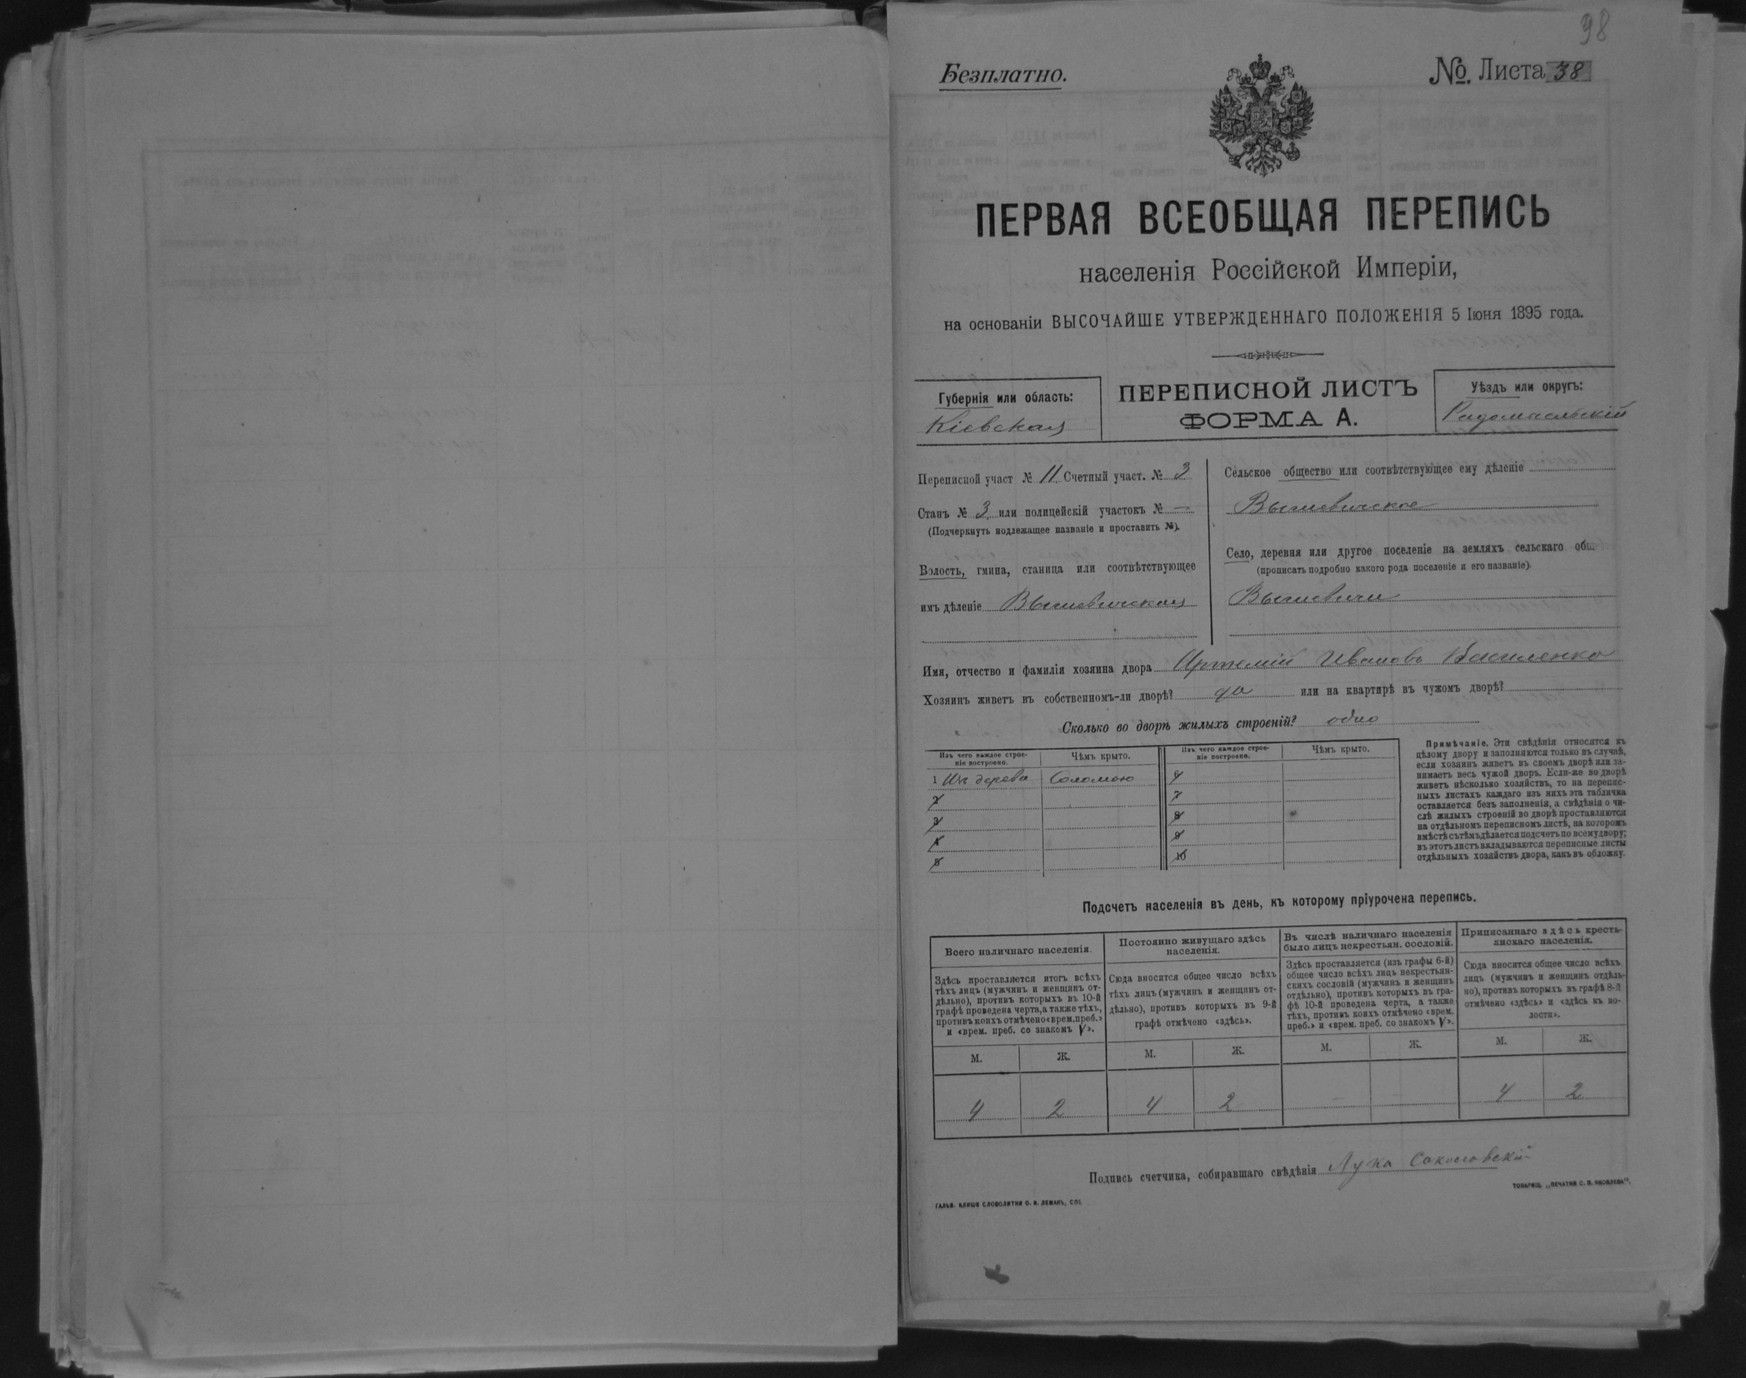 98
Безплатно.
№. Листа 38
ПЕРВАЯ ВСЕОБЩАЯ ПЕРЕПИСЬ
населенія Россійской Имперіи,
на основаніи ВЫСОЧАЙШЕ УТВЕРЖДЕННАГО ПОЛОЖЕНІЯ 5 Іюня 1895 года.
Губернія или область:
Кіевская
ПЕРЕПИСНОЙ ЛИСТЪ
ФОРМА А.
Уѣздъ или округъ:
Радомысльскій
Переписной участ № 11. Счетный участ. № 3
Станъ № 3 или полицейскій участокъ № —
(Подчеркнуть подлежащее названіе и проставить №).
Волость, гмина, станица или соотвѣтствующее
имъ дѣленіе Вышевичская
Сельское общество или соотвѣтствующее ему дѣленіе
Вышевичское
Село, деревня или другое поселеніе на земляхъ сельскаго общ.
(прописать подробно какого рода поселеніе и его названіе).
Вышевичи
Имя, отчество и фамилія хозяина двора Артемій Ивановъ Василенко
Хозяинъ живетъ въ собственномъ-ли дворѣ? да или на квартирѣ въ чужомъ дворѣ?
Сколько во дворѣ жилыхъ строеній? одно
Изъ чего каждое строе-
ніе построено.
Чѣмъ крыто.
Изъ чего каждое строе-
ніе построено.
Чѣмъ крыто.
1 Изъ дерева Соломою
2
3
4
5
7
8
9
10
Примѣчаніе. Эти свѣдѣнія относятся къ
цѣлому двору и заполняются только въ случаѣ,
если хозяинъ живетъ въ своемъ дворѣ или за-
нимаетъ весь чужой дворъ. Если-же во дворѣ
живетъ нѣсколько хозяйствъ, то на перепис-
ныхъ листахъ каждаго изъ нихъ эта табличка
оставляется безъ заполненія, а свѣдѣнія о чи-
слѣ жилыхъ строеній во дворѣ проставляются
на отдѣльномъ переписномъ листѣ, на которомъ
вмѣстѣ съ тѣмъ дѣлается подсчетъ по всему двору;
въ этотъ листъ вкладываются переписные листы
отдѣльныхъ хозяйствъ двора, какъ въ обложку.
Подсчетъ населенія въ день, къ которому пріурочена перепись.
Всего наличнаго населенія.
Здѣсь проставляется итогъ всѣхъ
тѣхъ лицъ (мужчинъ и женщинъ от-
дѣльно), противъ которыхъ въ 10-й
графѣ проведена черта, а также тѣхъ,
противъ коихъ отмѣчено «врем. преб.»
и «врем. преб. со знакомъ V».
Постоянно живущаго здѣсь
населенія.
Сюда вносится общее число всѣхъ
тѣхъ лицъ (мужчинъ и женщинъ от-
дѣльно), противъ которыхъ въ 9-й
графѣ отмѣчено «здѣсь».
Въ числѣ наличнаго населенія
было лицъ некрестьян. сословій.
Здѣсь проставляется (изъ графы 6-й)
общее число всѣхъ лицъ некрестьян-
скихъ сословій (мужчинъ и женщинъ
отдѣльно), противъ которыхъ въ гра-
фѣ 10-й проведена черта, а также
тѣхъ, противъ коихъ отмѣчено «врем.
преб.» и «врем. преб. со знакомъ V».
Приписаннаго здѣсь кресть-
янскаго населенія.
Сюда вносится общее число всѣхъ
лицъ (мужчинъ и женщинъ отдѣль-
но), противъ которыхъ въ графѣ 8-й
отмѣчено «здѣсь» и «здѣсь въ во-
лости».
М. Ж. М. Ж. М. Ж. М. Ж.
4 2 4 2 4 2
Подпись счетчика, собиравшаго свѣдѣнія Лука Соколовскій
ГАЛЬВ. КЛИШЕ СЛОВОЛИТНИ О. И. ЛЕМАНЪ, СПБ.
ТОВАРИЩ. „ПЕЧАТНЯ С. П. ЯКОВЛЕВА".